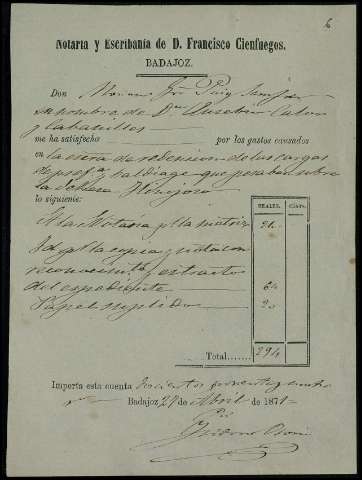 6
Notaría y Escribanía de D. Francisco Cienfuegos.
BADAJOZ.
Don Mariano
en nombre de Dn Eusebio Calvo
y Cabanillas
me ha satisfecho por los gastos causados
en la de redencion de las cargas
de y baldiage que pesaban sobre
la dehesa Hinojosa
lo siguiente:
REALES. Cénts.
A la Notaría pr la matriz
Id pr la copia y nota con
reconocimto y extractos
del espediente 64
Papel suplido 20
Total 294
Importa esta cuenta doscientos noventa y cuatro
Badajoz 27 de Abril de 1871